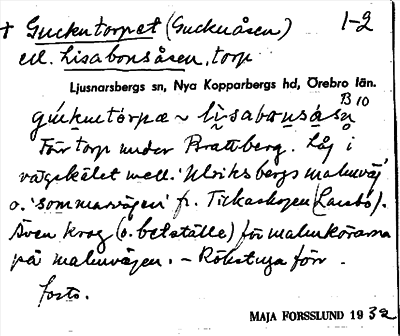 † Guckutorpet (Guckuåsen) 1-2
ell. Lisabonsåsen, torp
Ljusnarsbergs sn, Nya Kopparbergs hd, Örebro län.
B 10
gúkutórpæ ~ lisabonsåsn
Förr torp under Brattberg. Låg i
vägskälet mell. 'Ulriksbergs malmväg'
o. 'sommarvägen' fr. Tickaskogen (Laxbo).
Även krog (o. betställe) för malmkörarna
på malmvägen. – Rökstuga förr.
forts.
MAJA FORSSLUND 1932